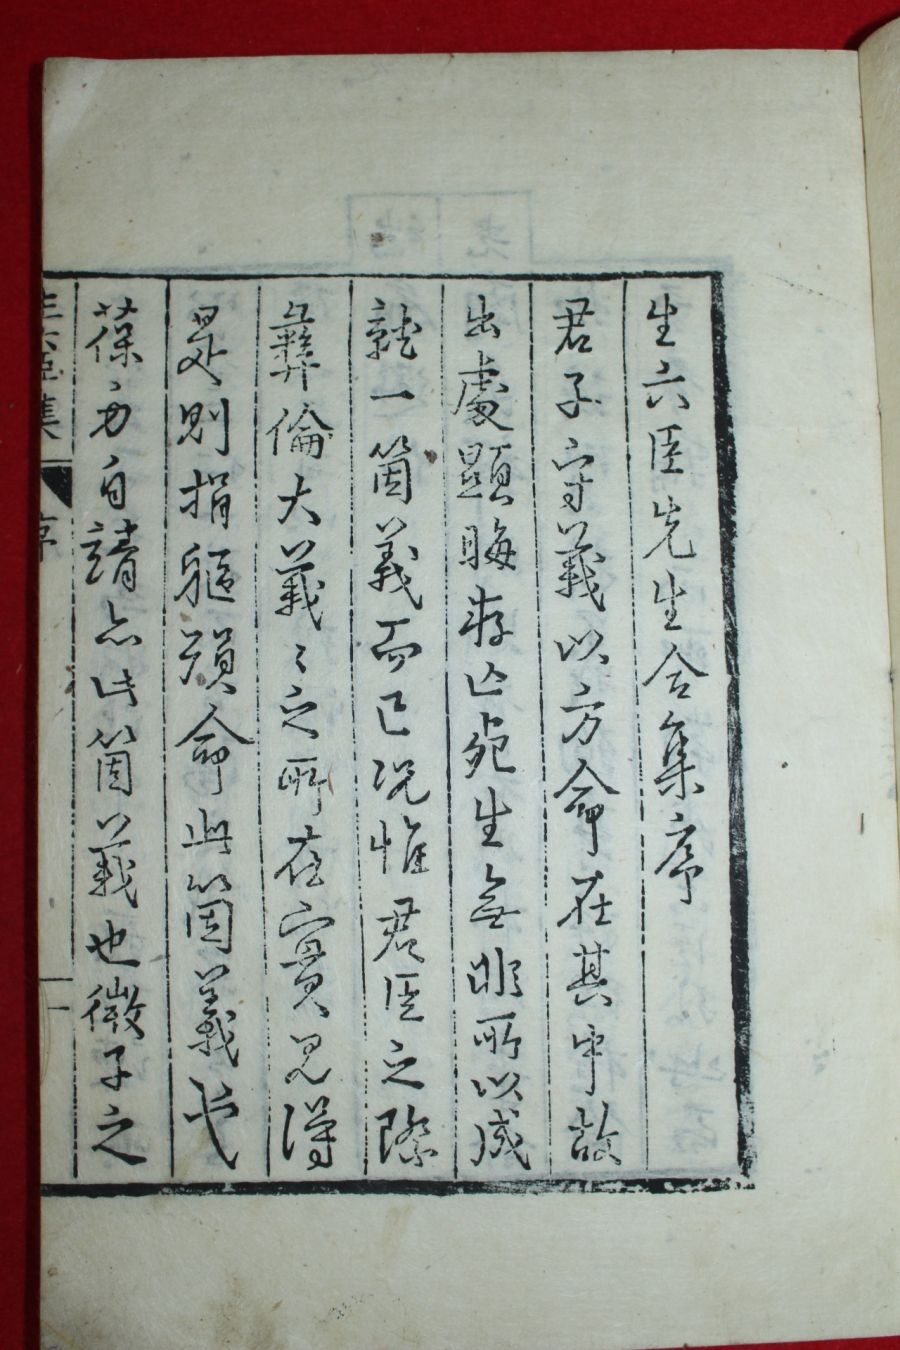 生六臣先生合集序
君子守義以方命在其中故
出處顯晦存亡死生無非所以成
就一箇義而已況惟君臣之際
彛倫大義〻之所在實見得
是則捐軀殞命此箇義也
葆身自靖亦此箇義也微子之
生六臣集
序
一